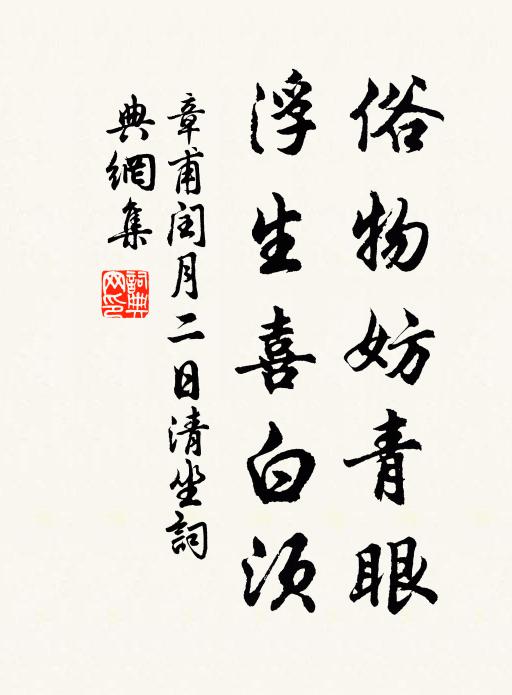 俗物妨青眼
浮生喜白须
章甫闰月二日清坐詞
典網集
詞典网印